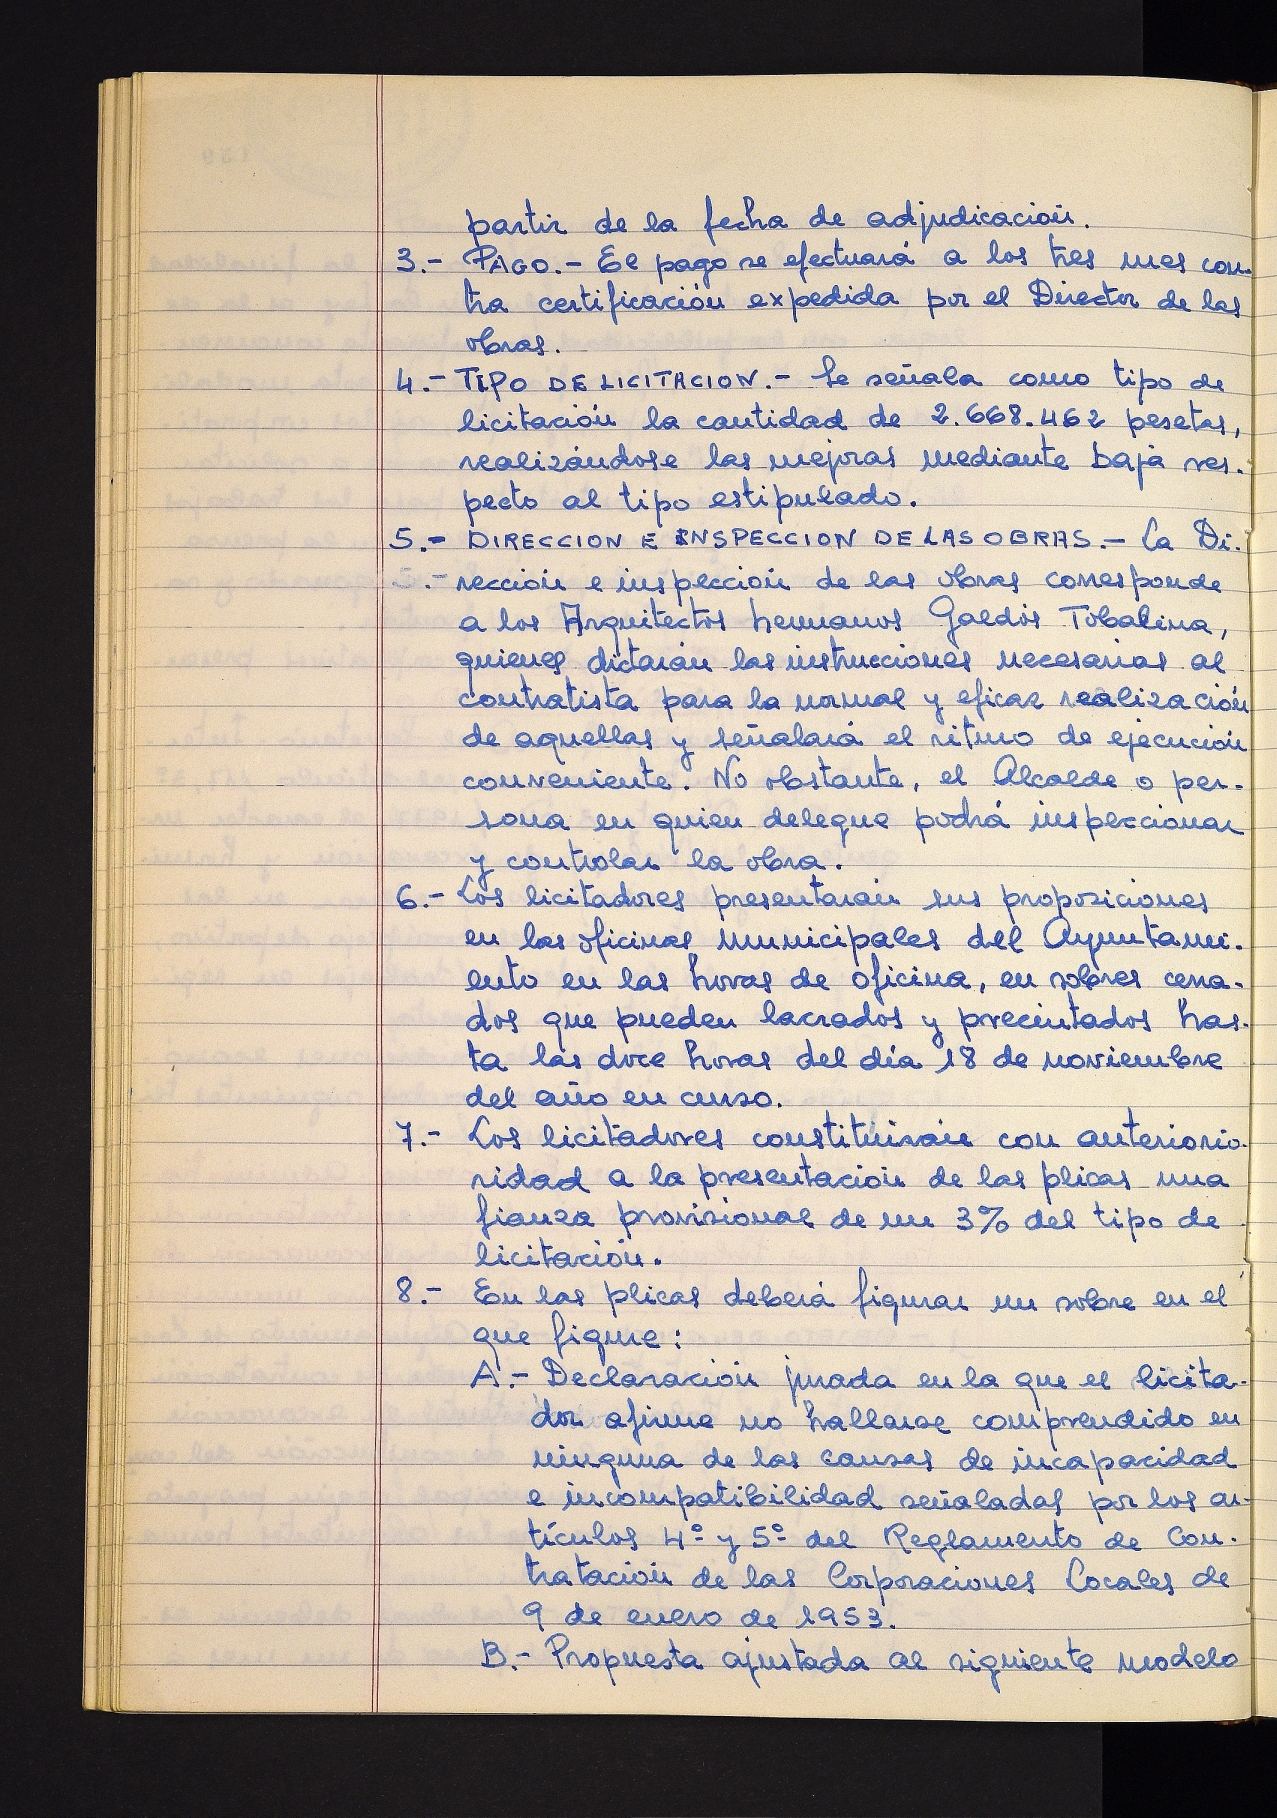 partir de la fecha de adjudicación.
3.- PAGO.- El pago se efectuará a los tres mes con-
tra certificación expedida por el Director de las
obras.
4.- TIPO DE LICITACION.- Se señala como tipo de
licitación la cantidad de 2.668.462 pesetas,
realizándose las mejoras mediante baja res-
pecto al tipo estipulado.
5.- DIRECCION E INSPECCION DE LAS OBRAS.- La Di-
rección e inspección de las obras corresponde
a los Arquitectos hermanos Galdós Tobalina,
quienes dictarán las instrucciones necesarias al
contratista para la normal y eficaz realización
de aquellas y señalará el ritmo de ejecución
conveniente. No obstante, el Alcalde o per-
sona en quien delegue podrá inspeccionar
y controlar la obra.
6.- Los licitadores presentarán sus proposiciones
en las oficinas municipales del Ayuntami-
ento en las horas de oficina, en sobres cerra-
dos que pueden lacrados y precintados has-
ta las doce horas del día 18 de noviembre
del año en curso.
7.- Los licitadores constituirán con anteriorio-
ridad a la presentación de las plicas una
fianza provisional de un 3% del tipo de
licitación.
8.- En las plicas deberá figurar un sobre en el
que figure:
A.- Declaración jurada en la que el licita-
dor afirme no hallarse comprendido en
ninguna de las causas de incapacidad
e incompatibilidad señaladas por los ar-
tículos 4º y 5º del Reglamento de Con-
tratación de las Corporaciones Locales de
9 de enero de 1953.
B.- Propuesta ajustada al siguiente modelo